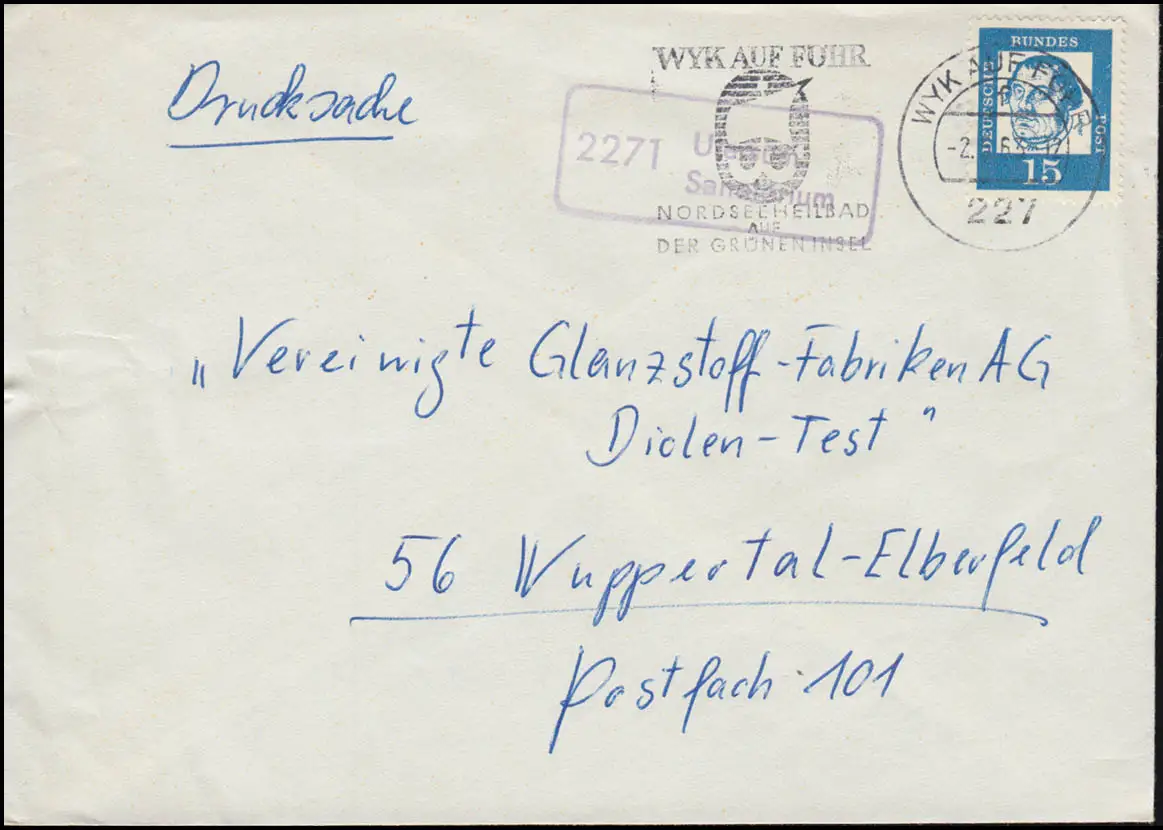 Drucksache
WYK AUF FÖHR
NORDSEEHEILBAD
AUF
DER GRÜNEN INSEL
2271
Sanatorium
WYK AUF FÖHR
-2.
227
DEUTSCHE
BUNDES
POST
15
„Vereinigte Glanzstoff-Fabriken AG
Diolen-Test“
56 Wuppertal-Elberfeld
Postfach 101